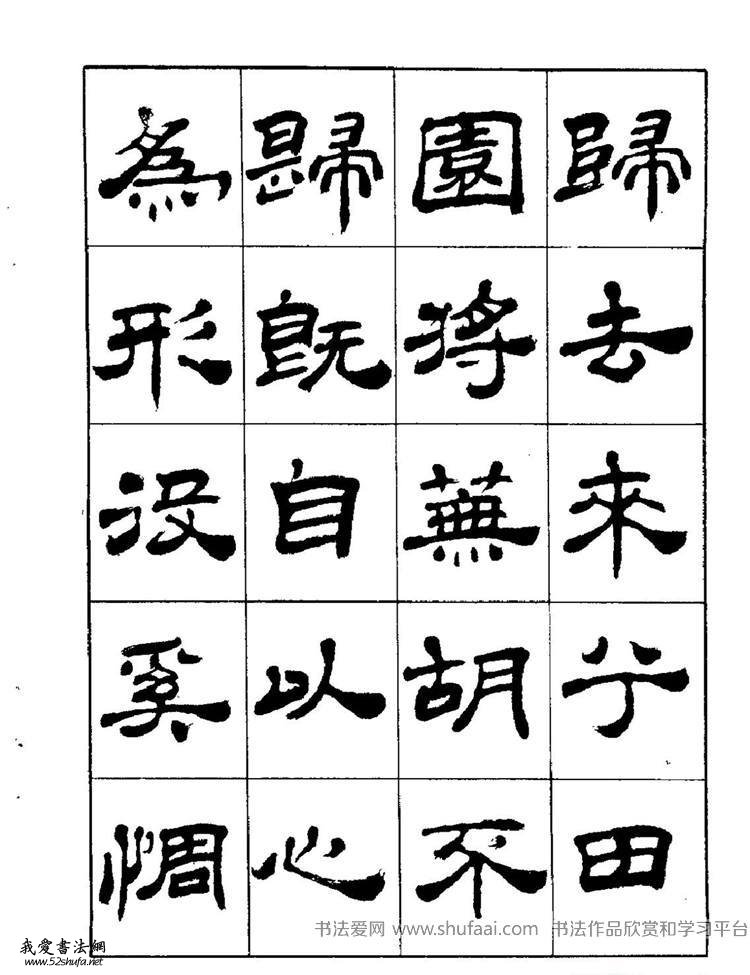 歸去來兮田
園將蕪胡不
歸既自以心
為形役奚惆
书法爱网 www.shufaai.com 书法作品欣赏和学习平台
我爱書法網
www.52shufa.net